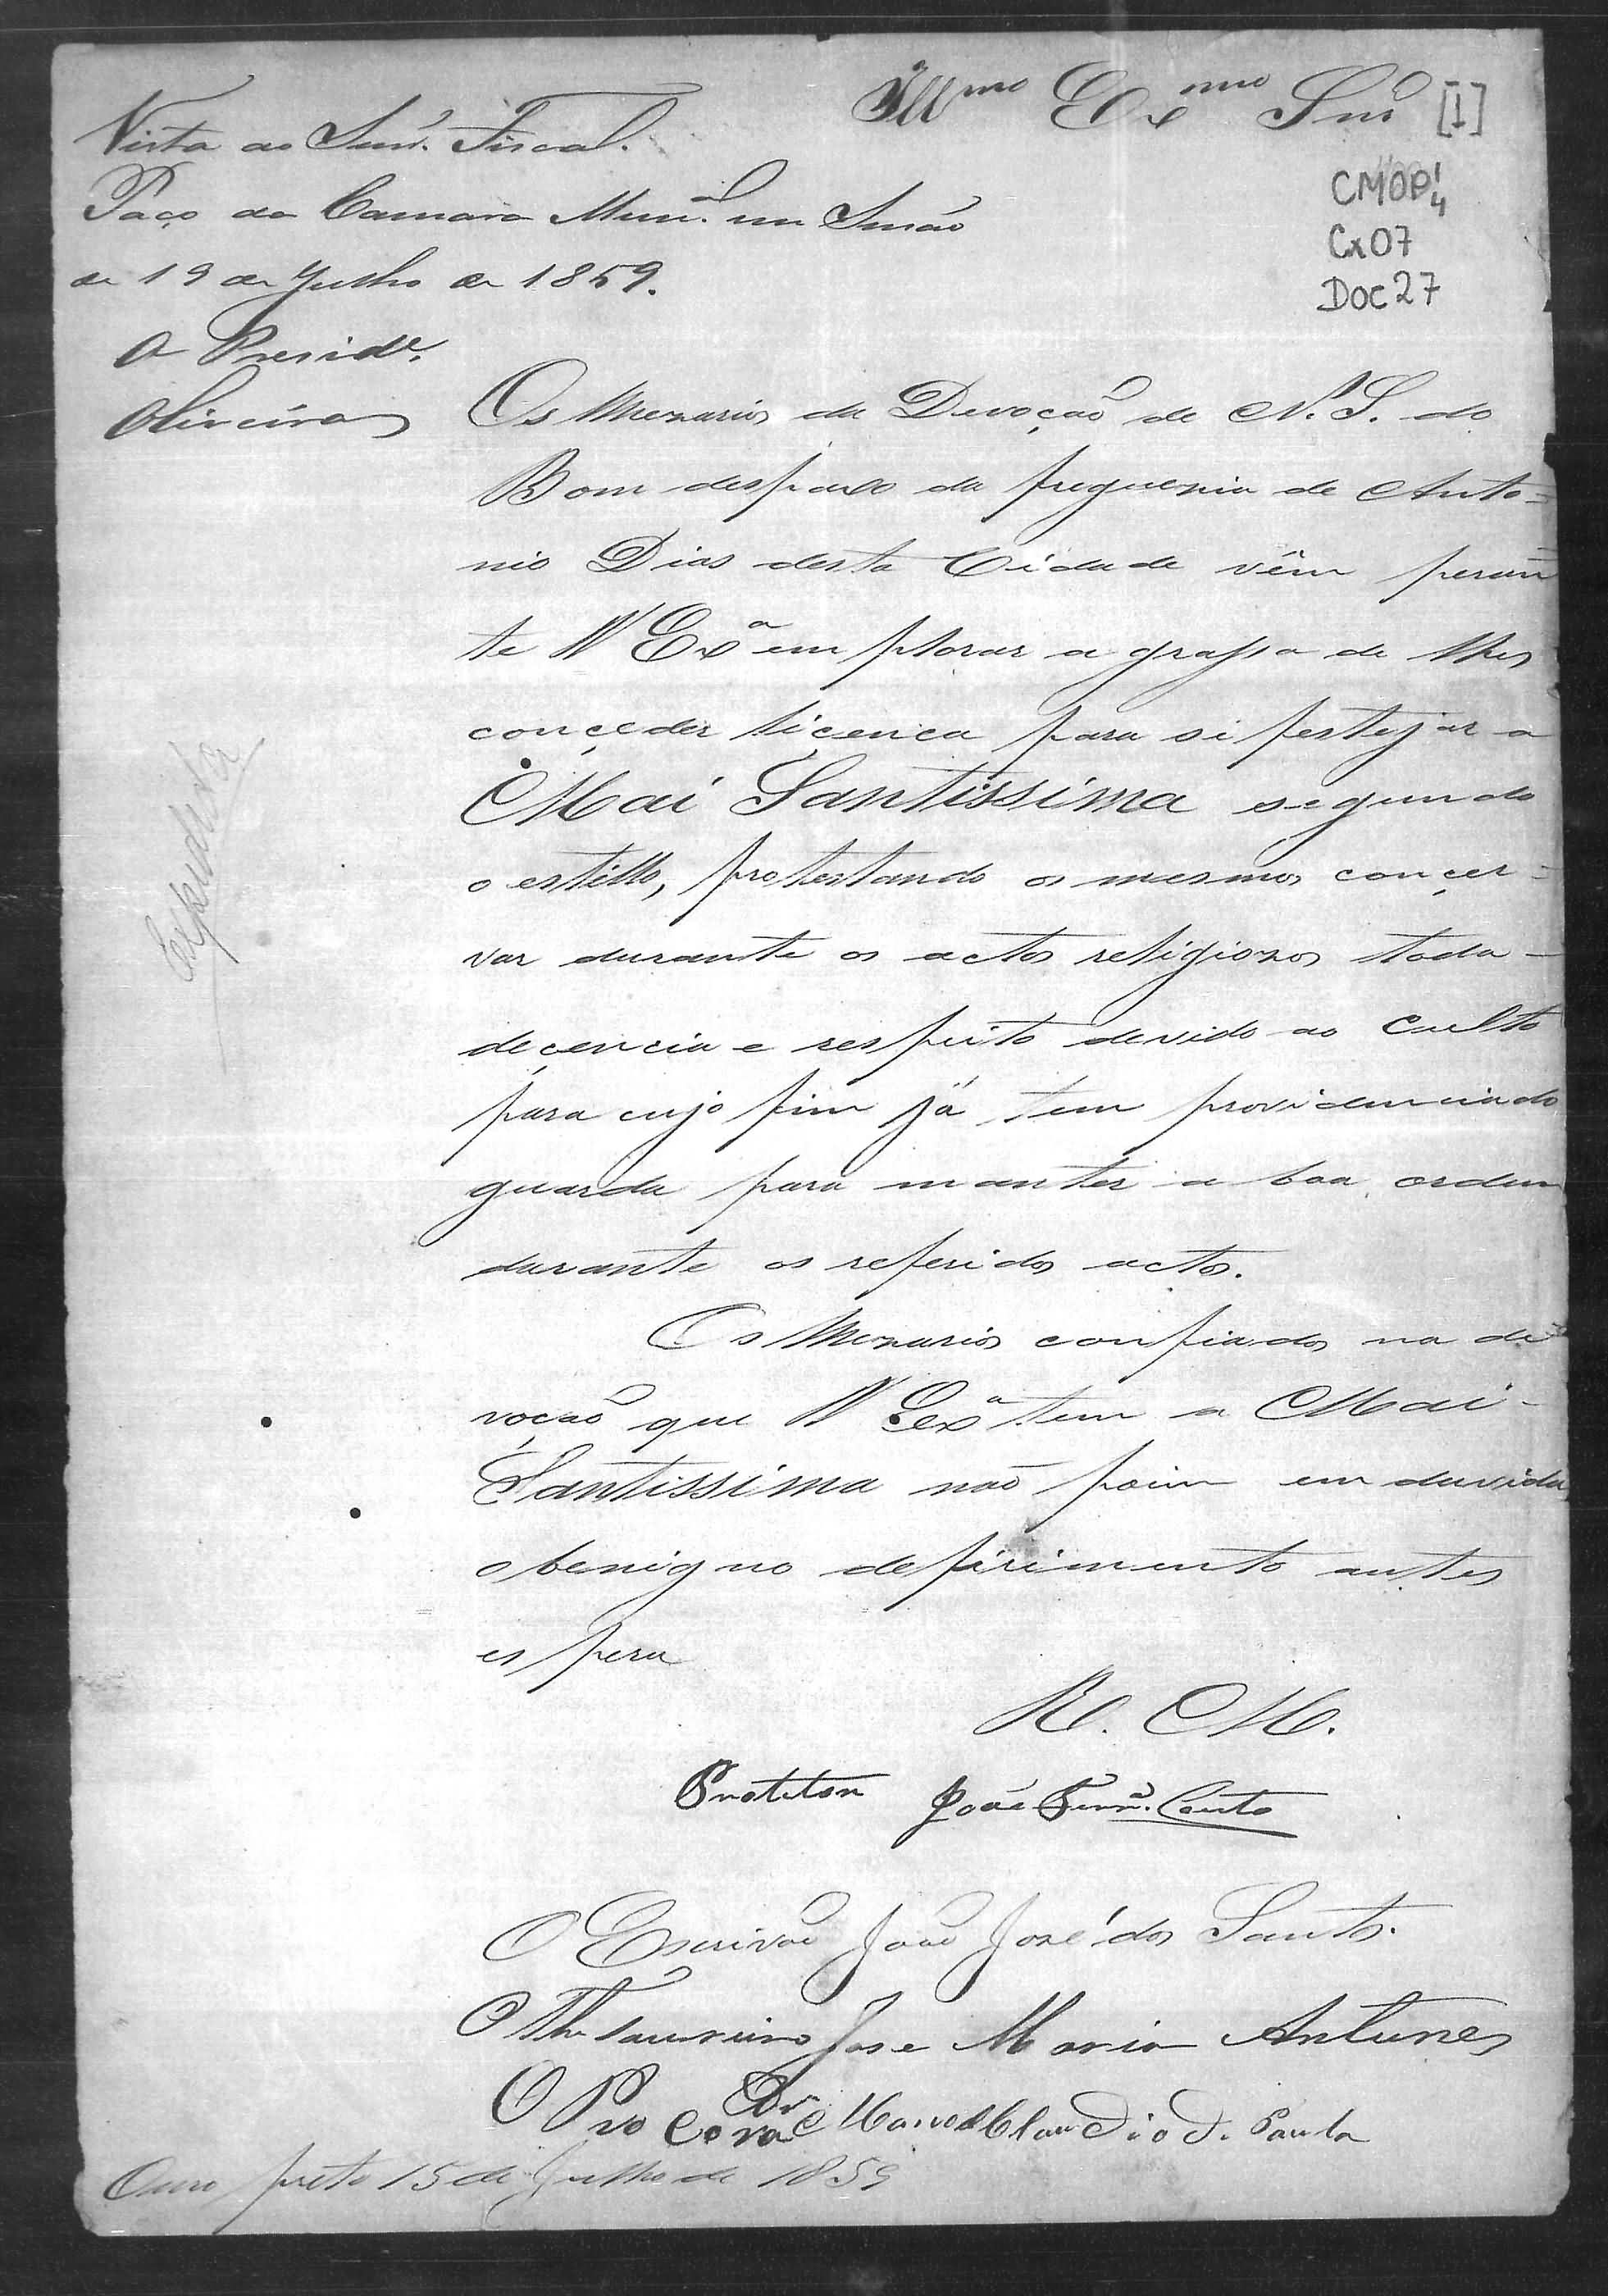 Illmo Exmo Snr [1]
CMOP 1/4
Cx07
Doc 27
Vista ao Snr. Fiscal.
Paço da Camara Munal. em Sessão
de 19 de Julho de 1859.
O Preside.
Oliveira
Os Mezarios da Devoção de N. S. do
Bom despaxo da freguezia de Anto=
nio Dias desta Cidade vêm peran
te V Exa emplorar a grassa de lhes
conçeder liçença para si festejar a
Mai Santissima segundo
o estillo, protestando os mesmos conçer=
var durante os actos religiozos toda
deçencia e respeito devido ao Cuelto
para cujo fim já tem providenciado
guarda para manter a boa ordem
durante os referidos actos.
Os Mezarios confiados na de
voção que V Exa tem a Mai-
Santissima não poim em duvida
o benigno defirimento antes
espera
R. M.
Protetor João Ferra. Couto
O Escrivão João José dos Santos.
O Thesoureiro Jose Maria Antunes
O Procorador Manoel Claudio d. Paula
Ouro preto 15 de Julho de 1859
Expedida